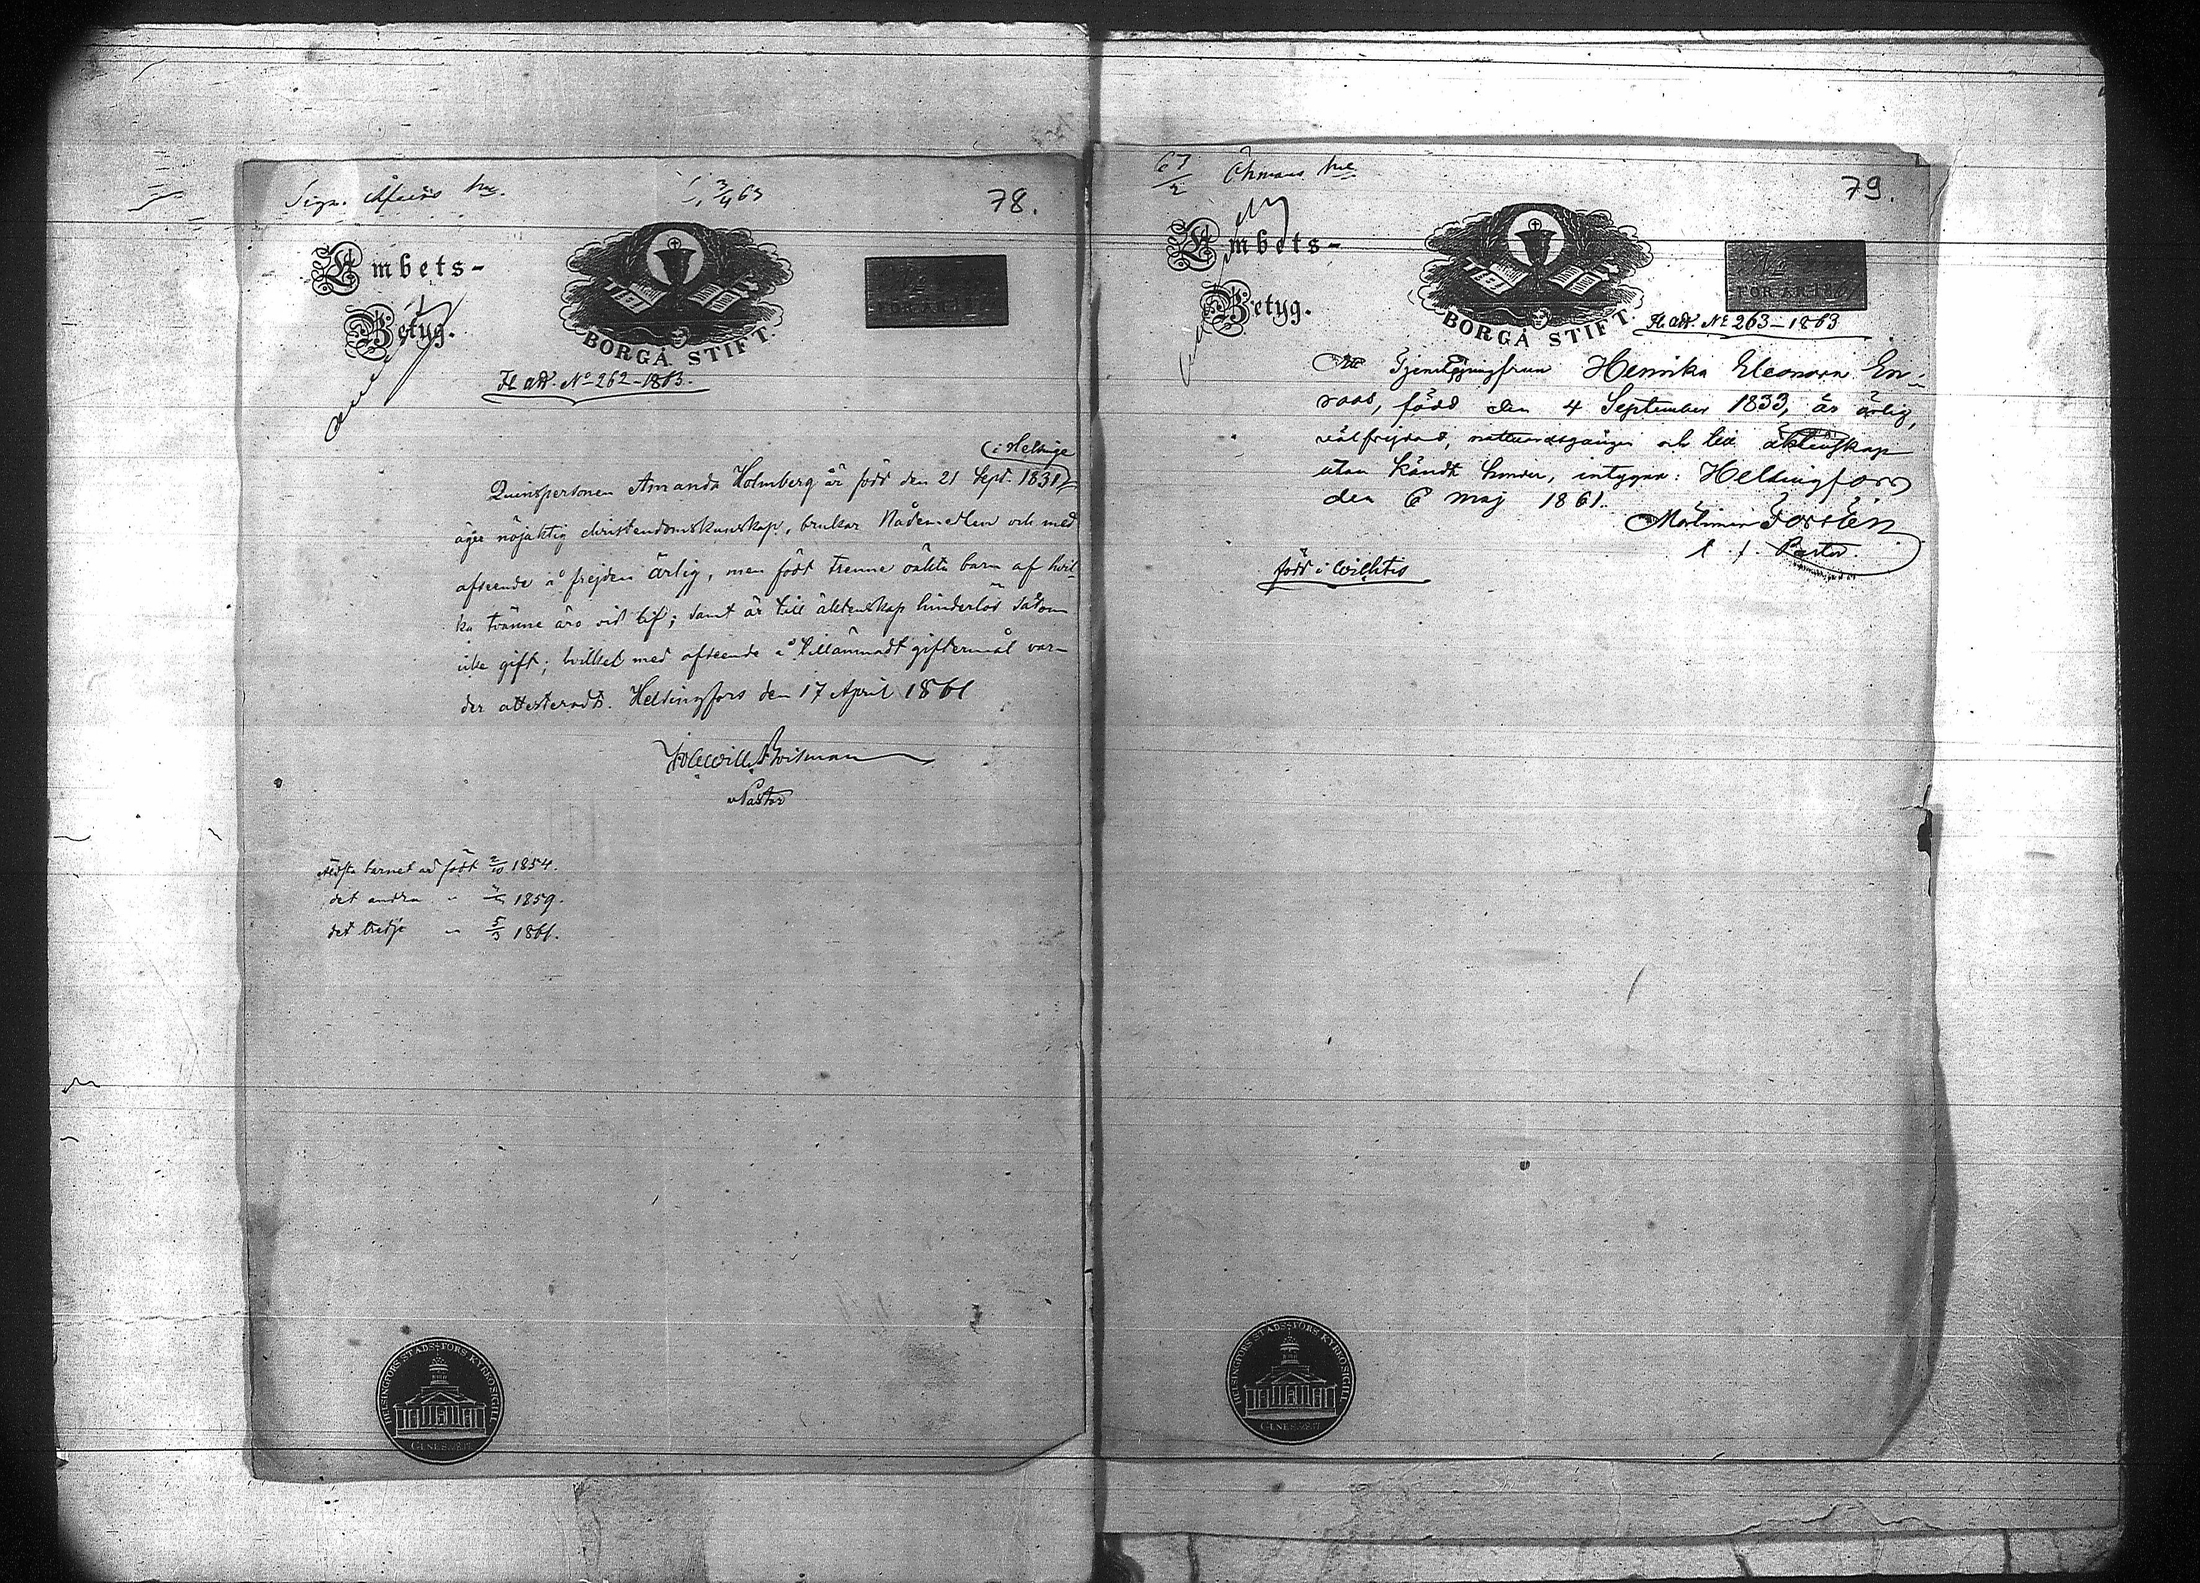 Sign.
3/4 63
78.
Embets-
Betyg.
BORGÅ STIFT.
FÖR ÅR 18
H. att. No 262-1863.
i Helsinge
Quinspersonen Amanda Holmberg är född den 21 Sept. 1831,
äger nöjaktig christendomskunskap, brukar Nådemedlen och med
afseende å frejden ärlig, men födt trenne oäkta barn af hvil-
ka tvänne äro vid lif; samt är till äktenskap hinderlös såsom
icke gift; hvilket med afseende å tillämnadt giftermål var-
der attesteradt. Helsingfors den 17 April 1861
Pastor
Äldsta barnet är födt 2/10 1854.
det andra " 1859.
det tredje " 5/3 1861.
HELSINGFORS STADS FÖRS. KYRKO SIGILL
67/2 Öhmans
79.
Embets-
Betyg.
BORGÅ STIFT.
FÖR ÅR 1861
H. att. No 263-1863
Att Tjenstejungfrun Henrika Eleonora En-
roos, född den 4 September 1833, är ärlig,
välfrejdad, nattvardsgången och till äktenskap
utan kändt hinder, intygar: Helsingfors
den 6 Maj 1861.
Forstén
t. f. Pastor.
född i Wichtis
HELSINGFORS STADS FÖRS. KYRKO SIGILL